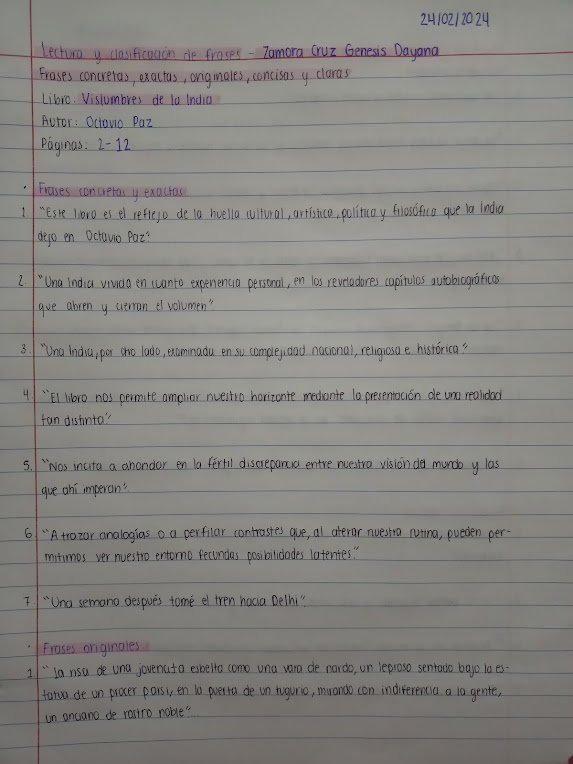 24/02/2024
Lectura y clasificación de frases - Zamora Cruz Genesis Dayana
Frases concretas, exactas, originales, concisas y claras
Libro: Vislumbres de la India
Autor: Octavio Paz
Páginas: 2-12
• Frases concretas y exactas
1 "Este libro es el reflejo de la huella cultural, artística, política y filosófica que la India
dejo en Octavio Paz".
2 "Una India vivida en cuanto experiencia personal, en los reveladores capítulos autobiográficos
que abren y cierran el volumen".
3. "Una India, por otro lado, examinada en su complejidad nacional, religiosa e histórica".
4. "El libro nos permite ampliar nuestro horizonte mediante la presentación de una realidad
tan distinta".
5. "Nos incita a ahondar en la fértil discrepancia entre nuestra visión del mundo y las
que ahí imperan".
6. "A trazar analogías o a perfilar contrastes que, al aterar nuestra rutina, pueden per-
mitirnos ver nuestro entorno fecundas posibilidades latentes."
7. "Una semana después tomé el tren hacia Delhi".
• Frases originales
1 "la risa de una jovencita esbelta como una vara de nardo, un leproso sentado bajo la es-
tatua de un procer parsi, en la puerta de un tugurio, mirando con indiferencia a la gente,
un anciano de rostro noble".